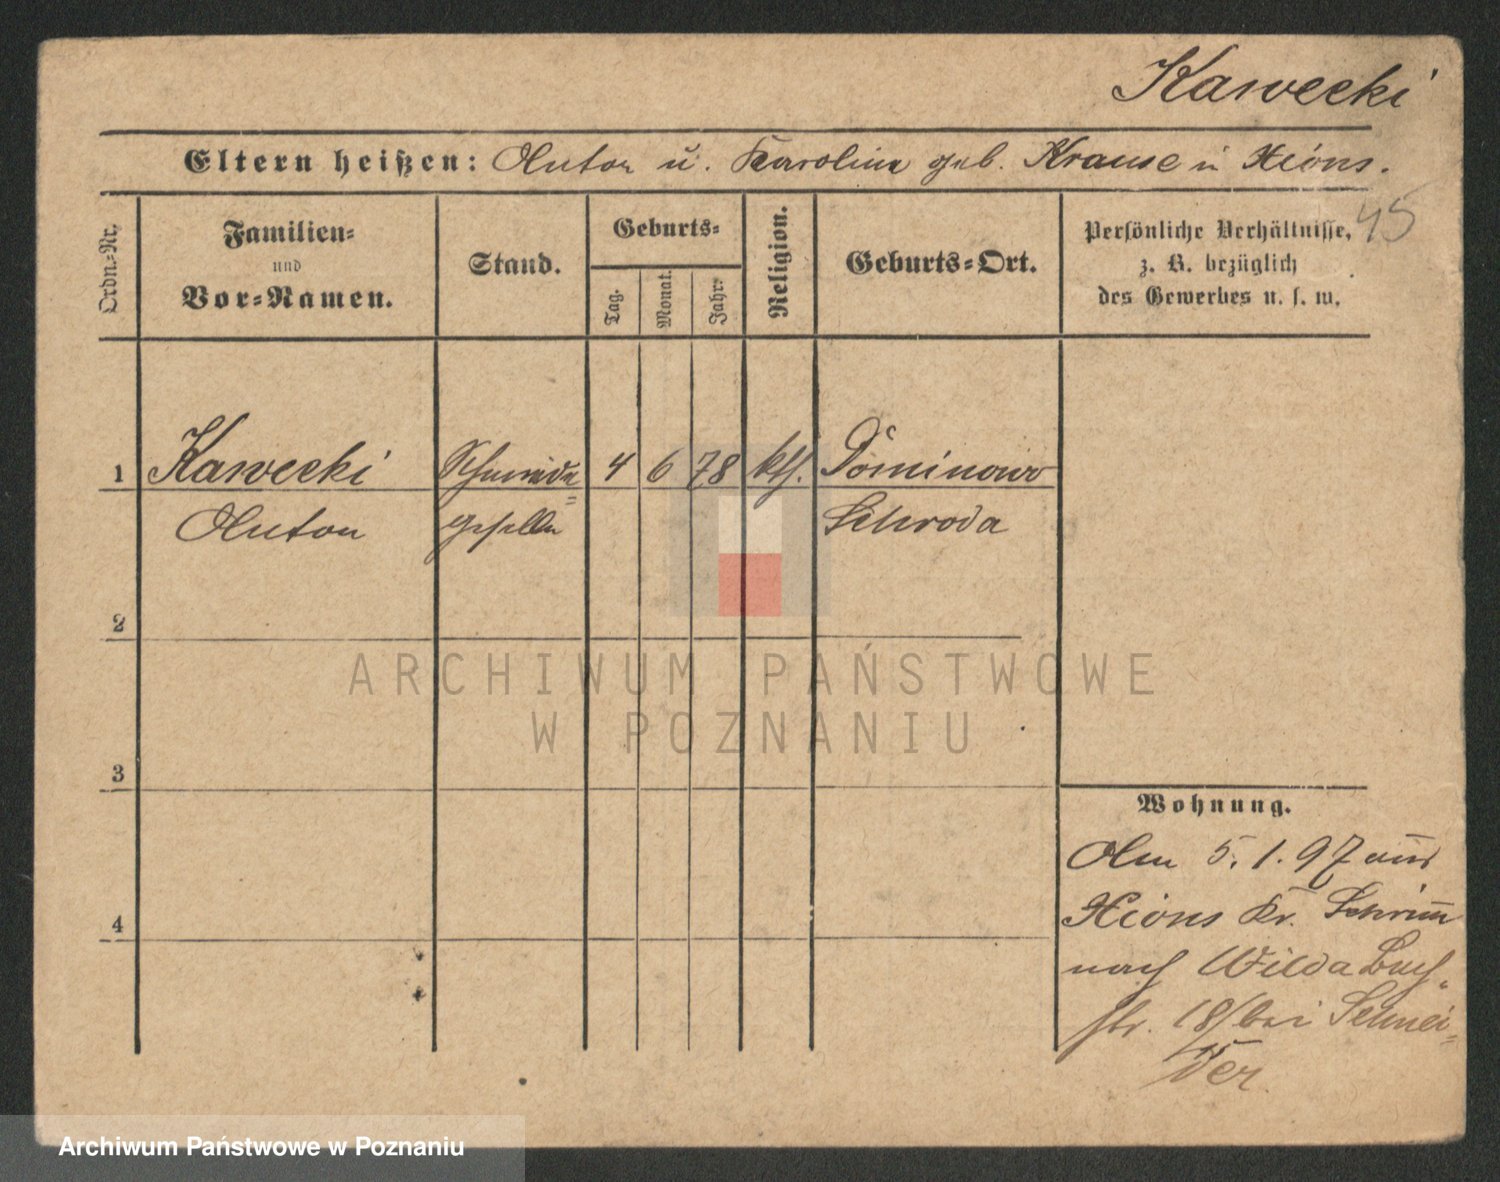 Kawecki
Eltern heißen: Anton u. Karolina geb. Krause in Xions.
45
Ordn.-Nr.
Familien- und Vor-Namen.
Stand.
Geburts-
Tag.
Monat.
Jahr.
Religion.
Geburts-Ort.
Persönliche Verhältnisse,
z. B. bezüglich
des Gewerbes u. s. w.
1 Kawecki Schmiede- 4 6 78 kth. Dominowo
Anton geselle Schroda
2
3
4
Wohnung.
Am 5.1.97 aus
Xions Kr. Schrimm
nach Wilda Bach-
str. 18/ bei Schnei-
der
ARCHIWUM PAŃSTWOWE
W POZNANIU
Archiwum Państwowe w Poznaniu